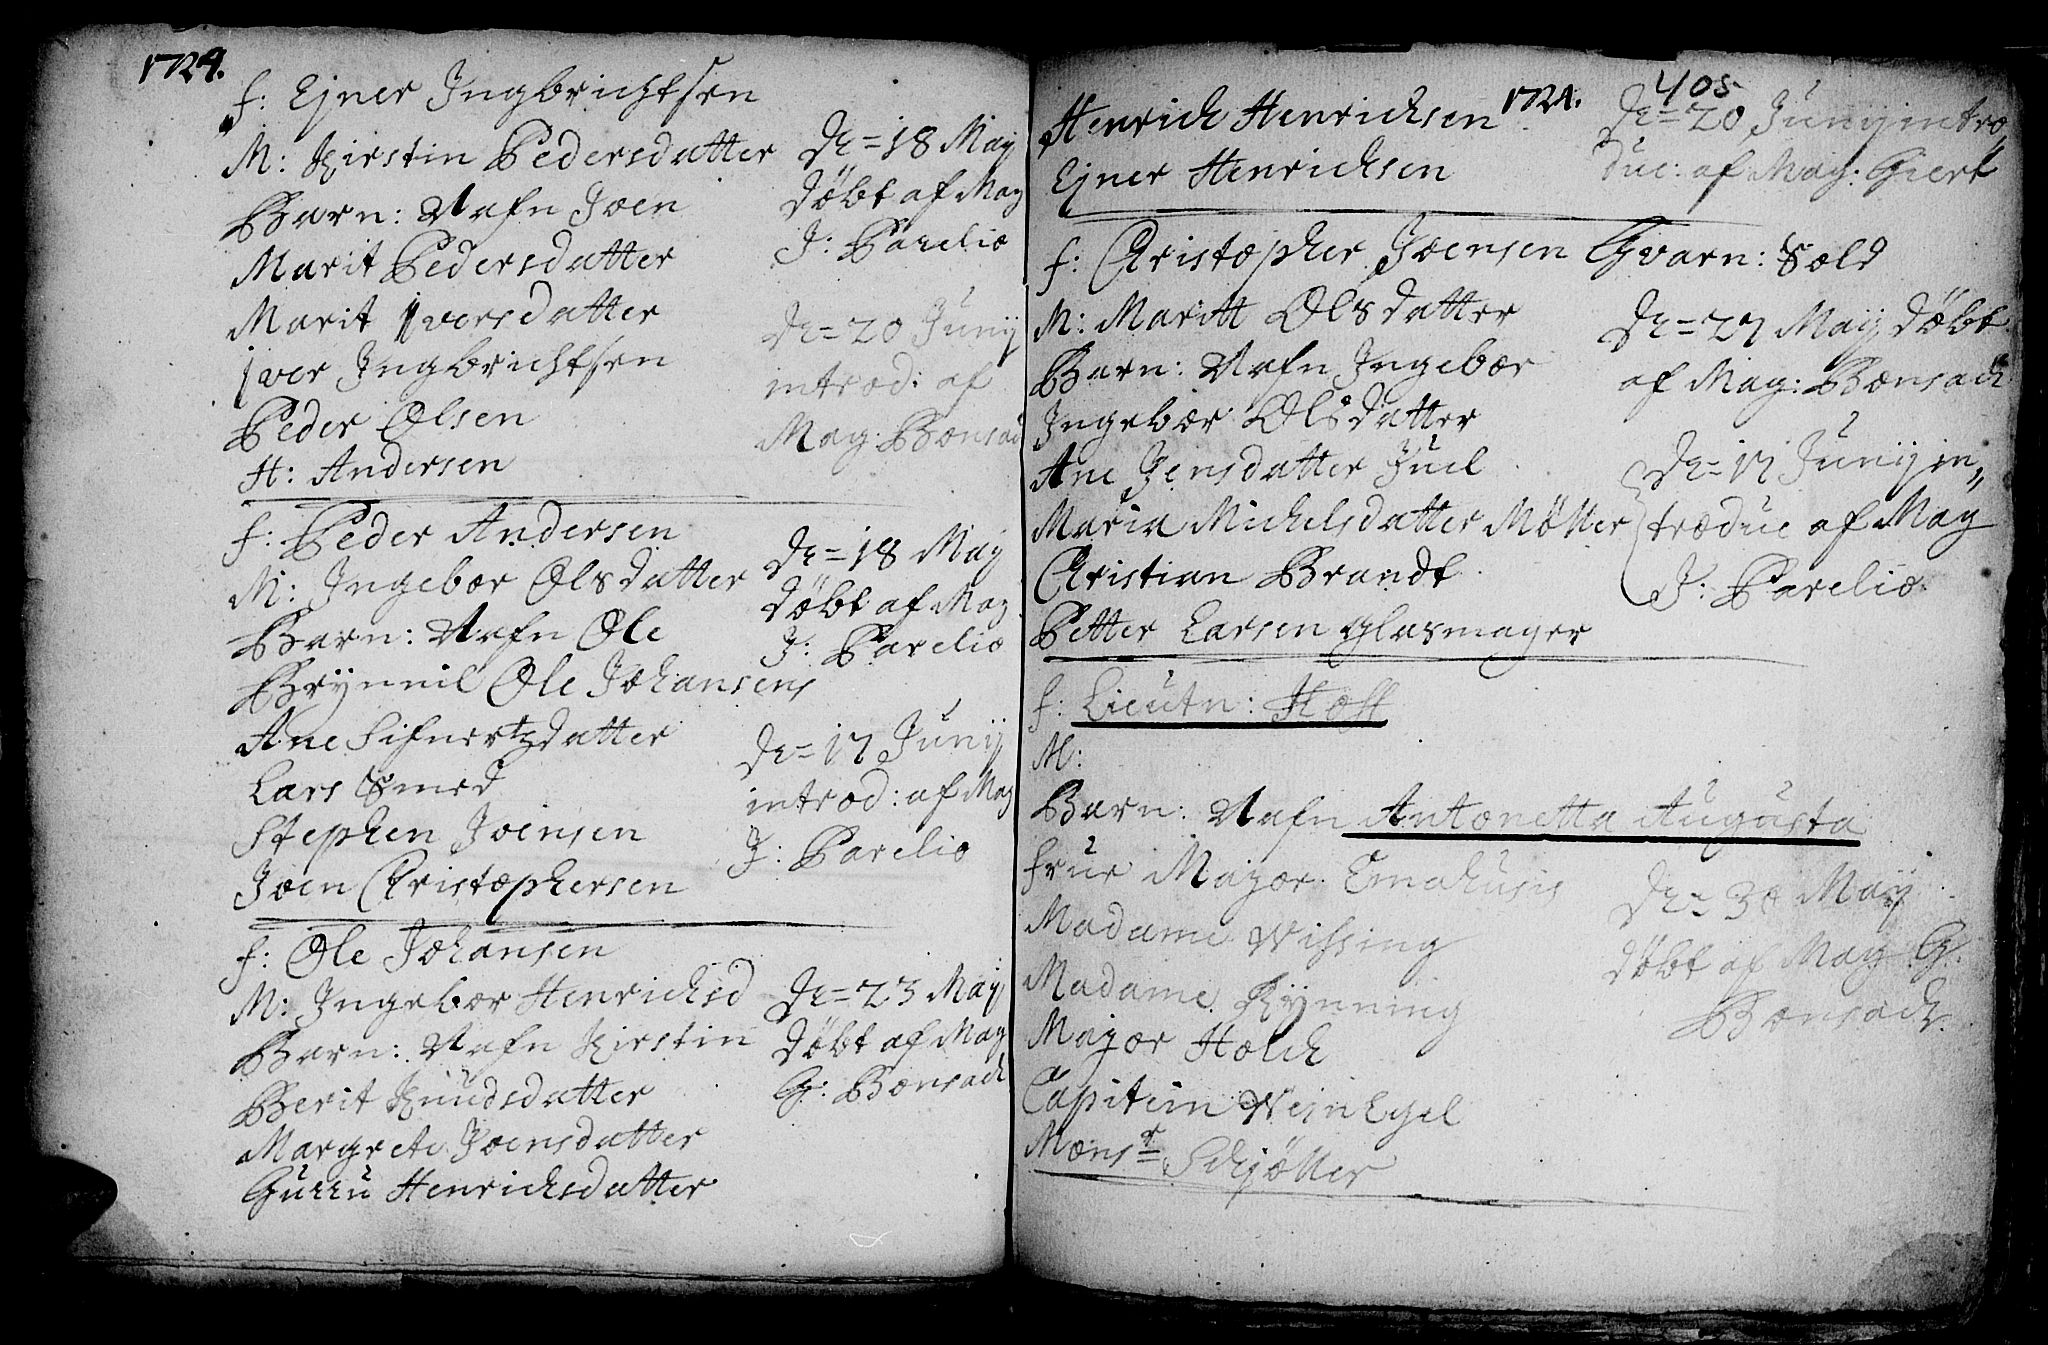 1724.
f: Ejner Jngbrichtsen
M: Kirstin Pedersdatter
Barn: Nafn Joen
Marit Pedersdatter
Marit Iversdatter
Iver Jngbrichtsen
Peder Olsen
H: Andersen
De = 18 Maij
döbt af Mag
J: Parelio
De = 20 Junij
introd: af
Mag: Bonsac
f: Peder Andersen
M: Jngebor Olsdatter
Barn: Nafn Ole
Brynnil Ole Johansens
Ane Sifuertzdatter
Lars Smed
Stephen Joensen
Joen Christophersen
De = 18 Maij
döbt af Mag
J: Parelio
De = 17 Junij
introd: af Mag
J: Parelio
f: Ole Johansen
M: Jngebor Henrichsd
Barn: Nafn Kirstin
Berit Knüdsdatter
Margrete Joensdatter
Gurru Henrichsdatter
De = 23 Maij
döbt af Mag
G: Bonsach
1724.
405
Henrich Henrichsen
Ejner Henrichsen
De = 20 Junij intro,,
duc: af Mag: Giert
f: Christopher Joensen Gvarn: Sold
M: Maritt Olsdatter
Barn: Nafn Jngebor
Jngebor Olsdatter
Ane Jensdatter Juel
Maria Michelsdatter Möller
Christian Brandt
Petter Larsen glasmager
De = 27 Maij döbt
af Mag: Bonsach
De = 17 Junij in,,
troduc af Mag
J: Parelio.
f: Lieutn: Hoff
M:
Barn: Nafn Antonetta Augusta
Frue Major Emahusis
Madame Wissing
Madame Rynning
Major Holck
Capitein WeinEgel
Monsr Schjöller
De = 30 Maij
döbt af Mag G.
Bonsach.